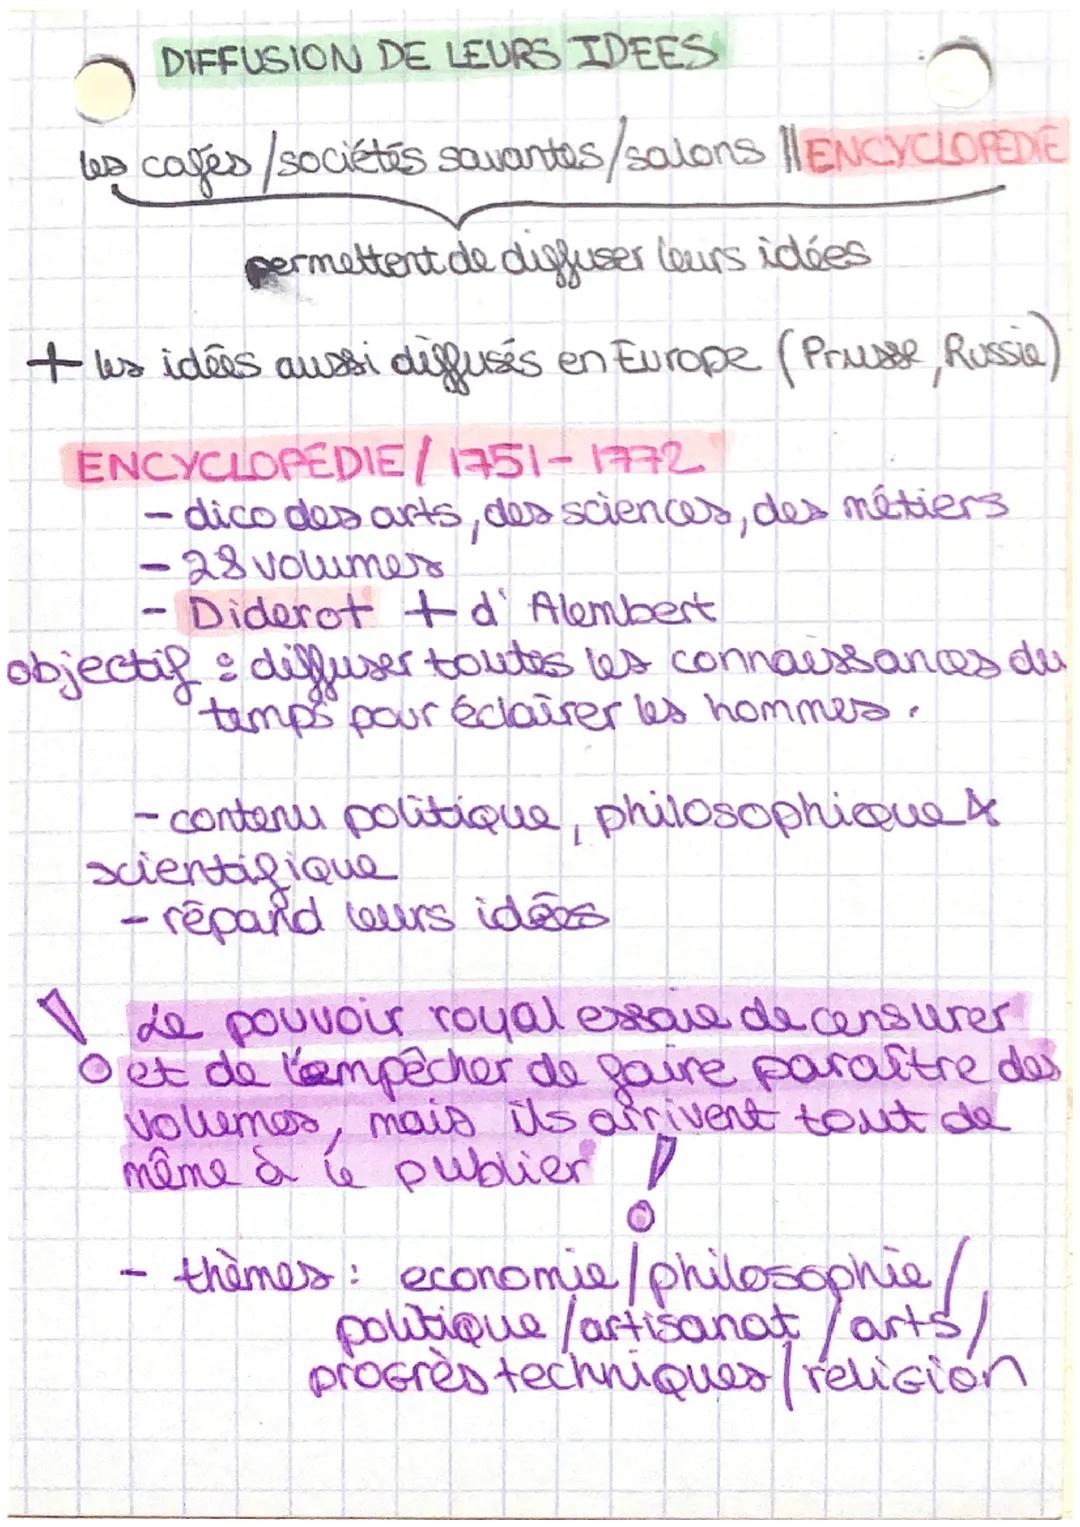 DIFFUSION DE LEURS IDEES
les cafés / sociétés savantes / salons || ENCYCLOPEDIE
permettent de diffuser leurs idées
+ les idées aussi diffusés en Europe (Prusse, Russie)
ENCYCLOPÉDIE / 1751 - 1772
- dico des arts, des sciences, des métiers
- 28 volumes
- Diderot + d'Alembert
objectif : diffuser toutes les connaissances du
temps pour éclairer les hommes.
- contenu politique, philosophique &
scientifique
- répand leurs idées
! Le pouvoir royal essaie de censurer
et de l'empêcher de faire paraître des
volumes, mais ils arrivent tout de
même à le publier !
- thèmes : economie / philosophie /
politique / artisanat / arts /
progrès techniques / religion